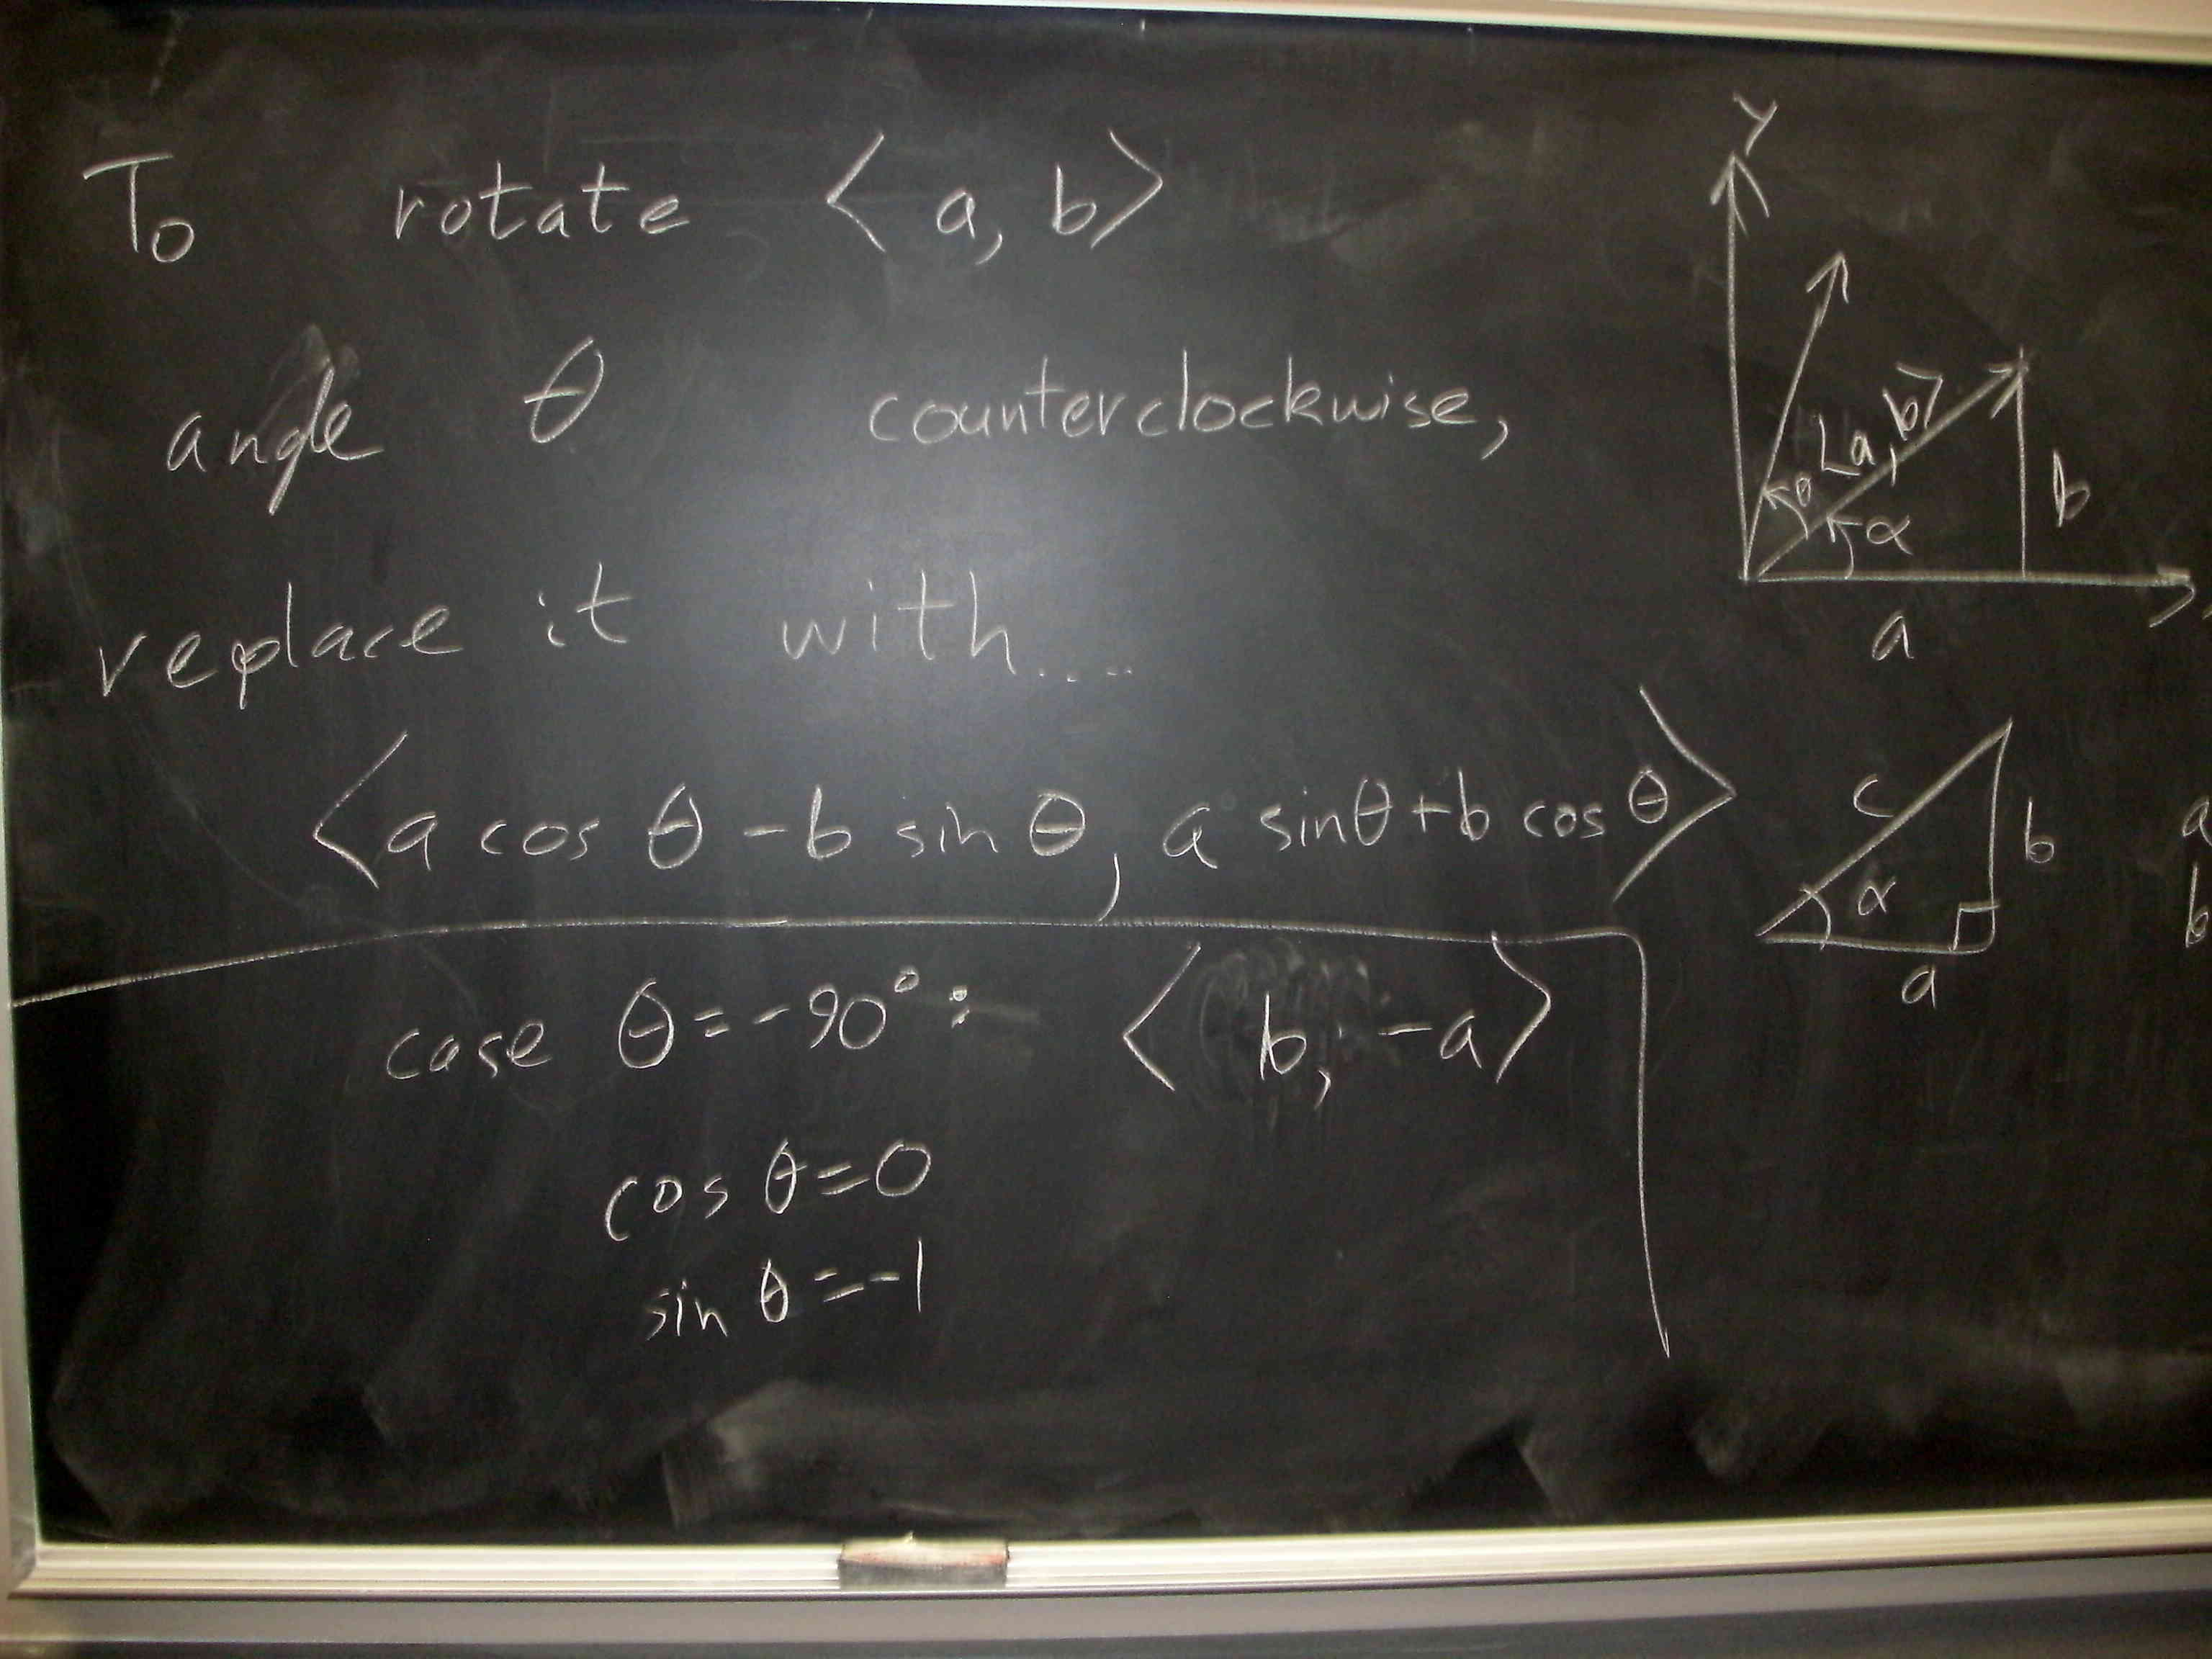 To rotate ⟨a, b⟩
angle θ counterclockwise,
replace it with....
⟨a cos θ - b sin θ, a sinθ + b cos θ⟩
case θ = -90° : ⟨b, -a⟩
cos θ = 0
sin θ = -1
y
⟨a, b⟩
θ
α
b
a
c
b
α
a
a
b